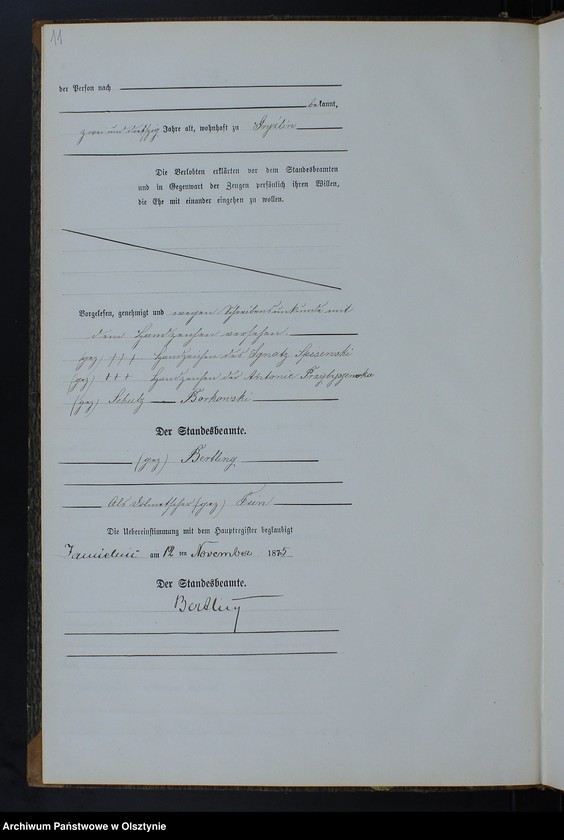 11
der Person nach
bekannt,
zwei und dreißig Jahre alt, wohnhaft zu
Die Verlobten erklärten vor dem Standesbeamten
und in Gegenwart der Zeugen persönlich ihren Willen,
die Ehe mit einander eingehen zu wollen.
Vorgelesen, genehmigt und wegen Schreibensunkunde mit
dem Handzeichen versehen
(gez) +++ Handzeichen des Ignatz
(gez) +++ Handzeichen der Antonie
(gez) Schulz Borkowski
Der Standesbeamte.
(gez) Bertling
Als Dolmetscher (gez)
Die Uebereinstimmung mit dem Hauptregister beglaubigt
am 12 ten November 1875
Der Standesbeamte.
Bertling
Archiwum Państwowe w Olsztynie